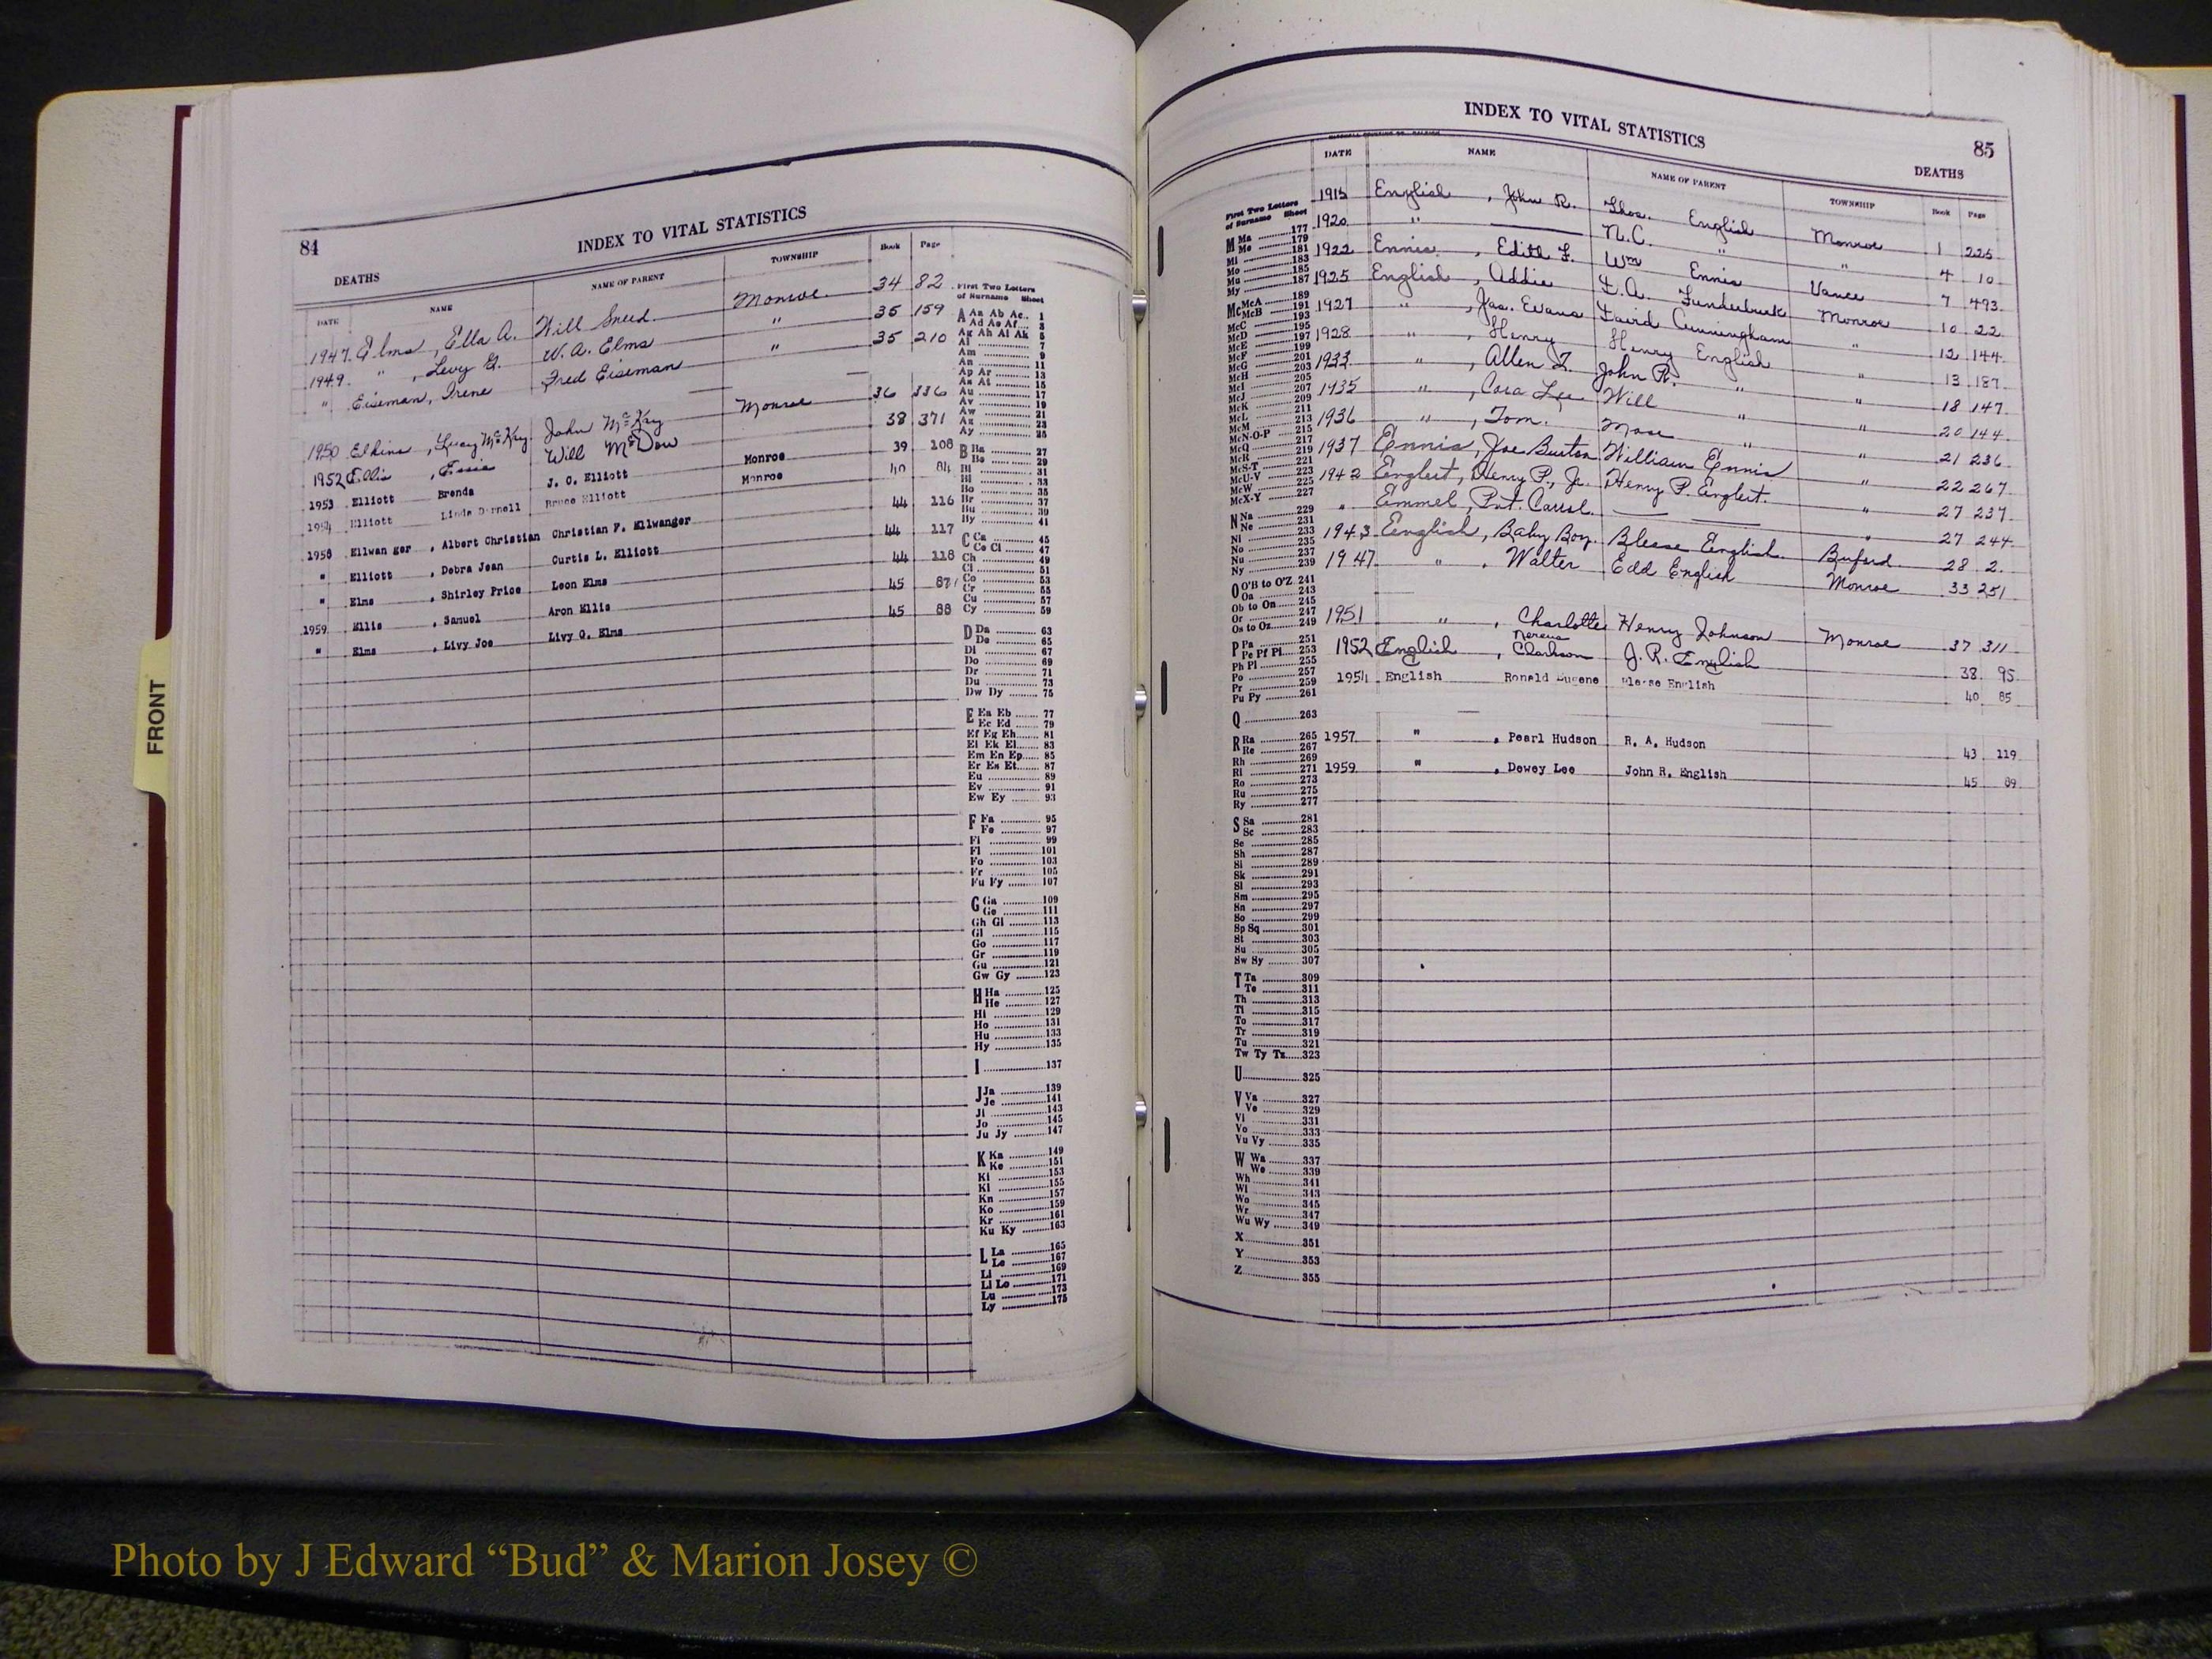 FRONT
84
INDEX TO VITAL STATISTICS
DEATHS
DATE NAME NAME OF PARENT TOWNSHIP Book Page
1947 Elms, Ella A. Will Sneed Monroe 34 82
1949 " , Levy G. W. A. Elms " 35 159
" Eiseman, Irene Fred Eiseman " 35 210
1950 Elkins, Lucy McKay John McKay Monroe 36 336
1952 Ellis, Essie Will McDow 38 371
1953 Elliott Brenda J. C. Elliott Monroe 39 108
1954 Elliott Linda Darnell Bruce Elliott Monroe 40 84
1958 Ellwanger, Albert Christian Christian F. Ellwanger 44 116
" Elliott, Debra Jean Curtis L. Elliott 44 117
" Elms, Shirley Price Leon Elms 44 118
1959 Ellis, Samuel Aron Ellis 45 87
" Elms, Livy Joe Livy G. Elms 45 88
First Two Letters
of Surname Sheet
A Aa Ab Ac.. 1
Ad Ae Af... 3
Ag Ah Ai Ak 5
Al 7
Am 9
An 11
Ap Ar 13
As At 15
Au 17
Av 19
Aw 21
Az 23
Ay 25
B Ba 27
Be 29
Bi 31
Bl 33
Bo 35
Br 37
Bu 39
By 41
C Ca 45
Ce Ci 47
Ch 49
Cl 51
Co 53
Cr 55
Cu 57
Cy 59
D Da 63
De 65
Di 67
Do 69
Dr 71
Du 73
Dw Dy 75
E Ea Eb 77
Ec Ed 79
Ef Eg Eh 81
Ei Ek El 83
Em En Ep 85
Er Es Et 87
Eu 89
Ev 91
Ew Ey 93
F Fa 95
Fe 97
Fi 99
Fl 101
Fo 103
Fr 105
Fu Fy 107
G Ga 109
Ge 111
Gh Gi 113
Gl 115
Go 117
Gr 119
Gu 121
Gw Gy 123
H Ha 125
He 127
Hi 129
Ho 131
Hu 133
Hy 135
I 137
J Ja 139
Je 141
Ji 143
Jo 145
Ju Jy 147
K Ka 149
Ke 151
Ki 153
Kl 155
Kn 157
Ko 159
Kr 161
Ku Ky 163
L La 165
Le 167
Li 169
Ll Lo 171
Lu 173
Ly 175
INDEX TO VITAL STATISTICS
85
DEATHS
DATE NAME NAME OF PARENT TOWNSHIP Book Page
1915 English, John R. Thos. English Monroe 1 225
1920 " N.C. " " 4 10
1922 Ennis, Edith F. Wm Ennis Vance 7 493
1925 English, Addie L.A. Funderburk Monroe 10 22
1927 " , Jas. Evans Laird Cunningham " 12 144
1928 " , Henry Henry English " 13 187
1933 " , Allen Z. John R. " " 18 147
1935 " , Cora Lee Will " " 20 144
1936 " , Tom. Mose " " 21 236
1937 Ennis, Joe Burton William Ennis " 22 267
1942 Englert, Henry P., Jr. Henry P. Englert. " 27 237
" Emmel, Pvt. Carrol. " 27 244
1943 English, Baby Boy. Blease English. Buford 28 2
1947 " , Walter Edd English Monroe 33 251
1951 " , Charlotte Henry Johnson Monroe 37 311
1952 English, Nereus Clarkson J. R. English 38 95
1954 English Ronald Eugene Blease English 40 85
1957 " , Pearl Hudson R. A. Hudson 43 119
1959 " , Dewey Lee John R. English 45 89
First Two Letters
of Surname Sheet
M Ma 177
Me 179
Mi 181
Mo 183
Mu 185
My 187
Mc McA 189
McB 191
McC 193
McD 195
McE 197
McF 199
McG 201
McH 203
McI 205
McJ 207
McK 209
McL 211
McM 213
McN-O-P 215
McQ 217
McR 219
McS-T 221
McU-V 223
McW 225
McX-Y 227
N Na 229
Ne 231
Ni 233
No 235
Nu 237
Ny 239
O O'B to O'Z 241
Oa 243
Ob to On 245
Or 247
Os to Oz 249
P Pa 251
Pe Pf Pi 253
Ph Pl 255
Po 257
Pr 259
Pu Py 261
Q 263
R Ra 265
Re 267
Rh 269
Ri 271
Ro 273
Ru 275
Ry 277
S Sa 281
Sc 283
Se 285
Sh 287
Si 289
Sk 291
Sl 293
Sm 295
Sn 297
So 299
Sp Sq 301
St 303
Su 305
Sw Sy 307
T Ta 309
Te 311
Th 313
Ti 315
To 317
Tr 319
Tu 321
Tw Ty Tz 323
U 325
V Va 327
Ve 329
Vi 331
Vo 333
Vu Vy 335
W Wa 337
We 339
Wh 341
Wi 343
Wo 345
Wr 347
Wu Wy 349
X 351
Y 353
Z 355
Photo by J Edward “Bud” & Marion Josey ©